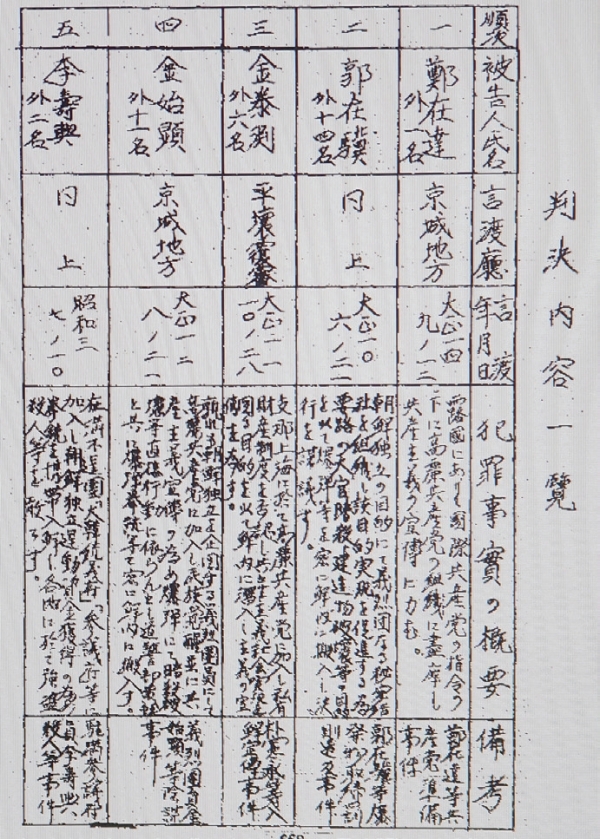 判決内容一覧
順
被告人氏名
言渡廳
言渡
年月日
犯罪事實の概要
備考
一
鄭在達
外一名
京城地方
大正一四
九ノ一二
露國にありて國際共産党の指令の
下に高麗共産党の組織に盡庠し
共産主義の宣傳に力む。
鄭在達等共
産党準備
事件
二
郭在驥
外十四名
同上
大正一〇
六ノ二一
朝鮮独立の目的にて義烈団なる秘密結
社を組織し該目的実現を促進する為
要路の大官暗殺建造物破壊等の目的
を以て爆弾等を密に鮮内に搬入し决
行を謀議す。
郭在驥等爆
発物取締罰
則違反事件
三
金泰渕
外六名
平壌覆審
大正一一
一〇ノ二八
支那上海に於て高麗共産党に加入し私有
財産制度を否認し共産主義社会実現を
図る目的を以て鮮内に潜入し主義の宣
傳を
等入
鮮宣傳事件
四
金始顕
外十一名
京城地方
大正一二
八ノ二一
朝鮮独立を企図する義烈團員にして
高麗共産党に加入し民族
産主義宣傳の為め爆弾にて暗殺破
壊等直接行動に依らんとし
と共に爆弾拳銃等を密に鮮内に搬入す。
義烈團員金
始顕等陰謀
事件
五
李壽興
外二名
同上
昭和三
七ノ一〇
在満不逞團「大韓統義府」「参議府」等に
加入し朝鮮独立運動資金獲得の為め
拳銃を携帯入鮮し各地に於て強盗
殺人等を敢てす。
駐満参議府
員李壽興
殺人等事件